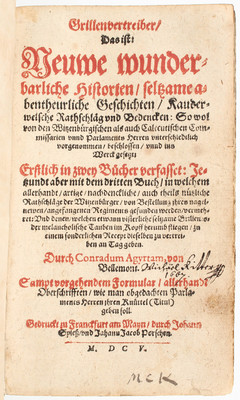 Grillenvertreiber/
Das ist:
Neuwe wunder-
barliche Historien/ seltzame a-
bentheurliche Geschichten/ Kauder-
welsche Rathschläg vnd Bedencken: So wol
von den Witzenbürgischen als auch Calecutischen Com-
missarien vnnd Parlaments Herren vnterschiedlich
vorgenommen/ beschlossen/ vnnd ins
Werck gesetzt:
Erstlich in zwey Bücher verfasset: Je-
tzund aber mit dem dritten Buch/ in welchem
allerhandt/ artige/ nachdenckliche/ auch theils nützliche
Rathschläg der Witzenbürger/ von Bestellung ihres nag-
neiwen/ angefangenen Regiments gefunden werden/ vermeh-
ret: Vnd denen welchen etwann visierliche selzame Grillen o-
der melancholische Tauben im Kopff herumb fliegen/ zu
einem sonderlichen Recept dieselben zu vertrei-
ben an Tag geben.
Durch Conradum Agyrtam, von
Bellemont.
Michael Ritter
Sampt vorgehendem Formular/ allerhandt
Oberschrifften/ wie man obgedachten Parla-
ments Herren ihren Knüttel (Titul)
geben soll.
Gedruckt zu Franckfurt am Mayn/ durch Johann
Spieß/ vnd Johann Jacob Porschen.
M. DC V.
MCK